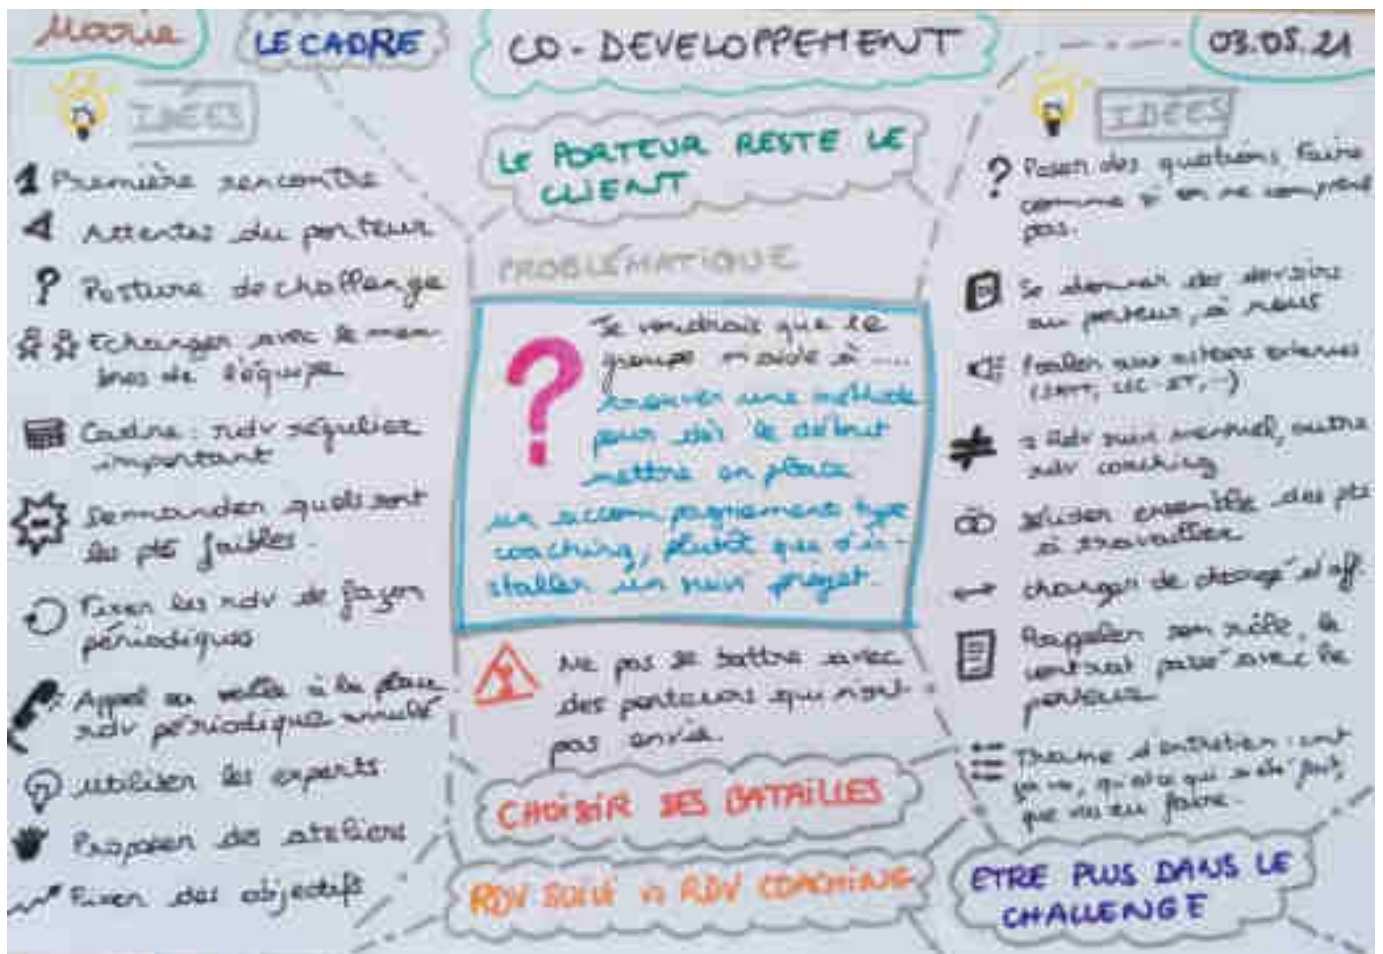 Marie
LE CADRE
CO-DEVELOPPEMENT
03.05.21
IDÉES
1 Première rencontre
Attentes du porteur
? Posture de challenge
Echanger avec le mem-
bres de l'équipe
Cadre : rdv régulier
important
Demander quels sont
les pts faibles.
Fixer les rdv de façon
périodiques
Appel ou à la place
rdv périodique annulé
utiliser les experts
Proposer des ateliers
Fixer des objectifs
LE PORTEUR RESTE LE
CLIENT
PROBLÉMATIQUE
?
Je voudrais que le
groupe m'aide à ....
trouver une méthode
pour dès le début
mettre en place
un accompagnement type
coaching, plutôt que d'in-
staller un suivi projet.
Ne pas se battre avec
des porteurs qui n'ont
pas envie.
CHOISIR SES BATAILLES
RDV SUIVI vs RDV COACHING
IDÉES
? Poser des questions, faire
comme si on ne comprend
pas.
Se donner des devoirs
au porteur, à nous
aux acteurs externes
(SATT,
≠ Rdv suivi mensuel, autre
rdv coaching
ensemble des pts
à travailler
changer de chargé d'aff.
Rappeler son rôle, le
contrat passé avec le
porteur
Trame d'entretien : cmt
ça va, qu'est ce qui a été fait,
que vas tu faire.
ETRE PLUS DANS LE
CHALLENGE